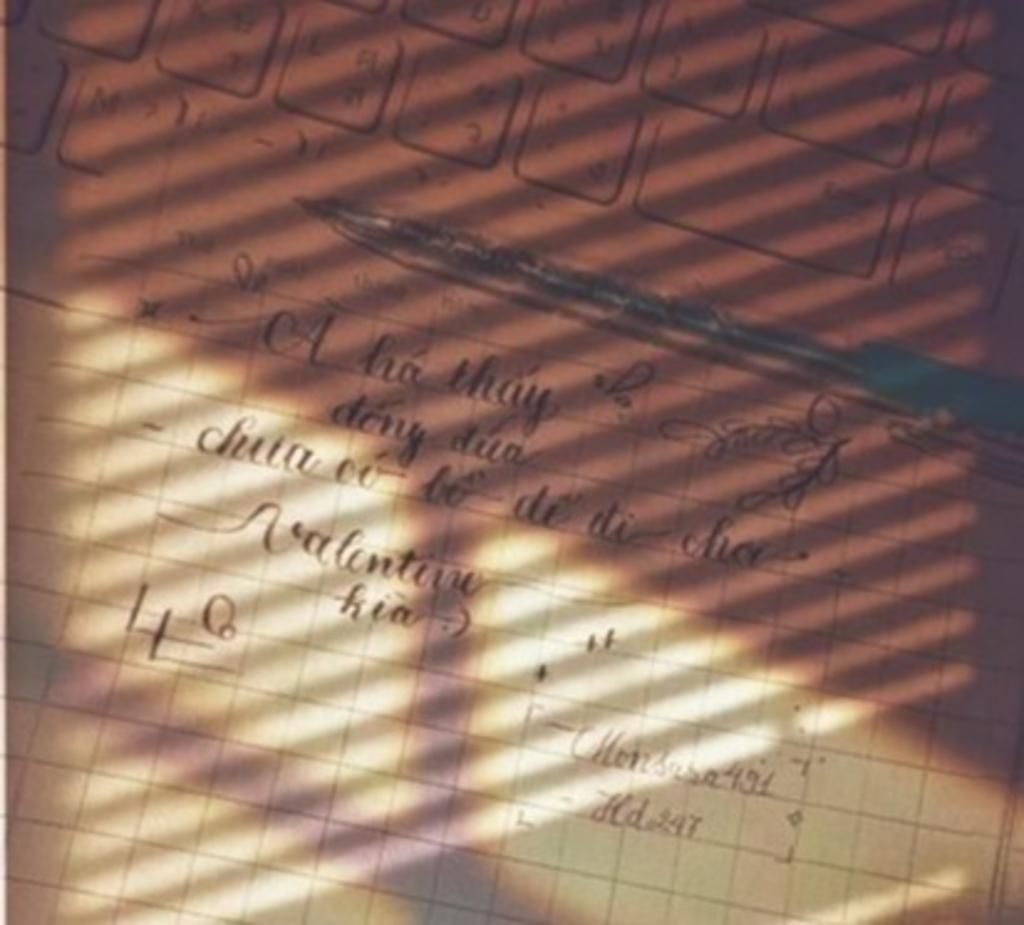 A há thấy
đống đứa
chưa có bồ để đi chơi
Valentine
kìa :)
Monsara491
Hd247